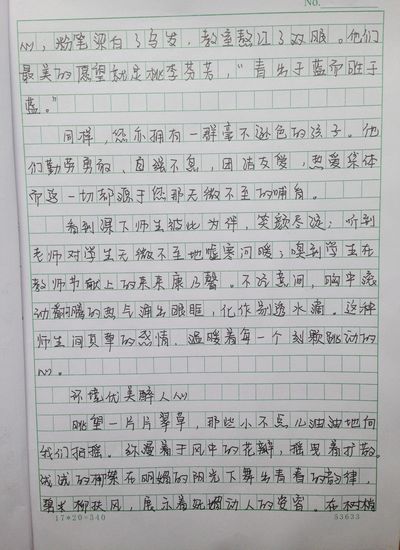 No.
心，粉笔染白了乌发，教室熬江了双眼。他们
最美的愿望就是桃李芬芳，“青出于蓝而胜于
蓝。”
同样，您亦拥有一群毫不逊色的孩子。他
们勤劳勇敢、自强不息，团洁友爱，热爱集体
而这一切都源于您那无微不至的哺育。
看到课下师生彼此为伴，笑颜尽绽；听到
老师对学生无微不至地嘘寒问暖；嗅到学生在
教师节献上的束束康乃馨。不经意间，胸中滚
动翻腾的热气涌出眼眶，化作剔透水滴。这种
师生间真挚的感情，温暖着每一个刻颗跳动的
心。
环境优美醉人心
眺望一片片翠草，那些小不点儿油油地向
我们招摇。弥漫着于风中的花瓣，摇曳着扩散。
浅浅的柳絮在明媚的阳光下舞出青春的韵律，
碧水柳扶风，展示着妩媚动人的姿容。在树梢
17*20=340
53633